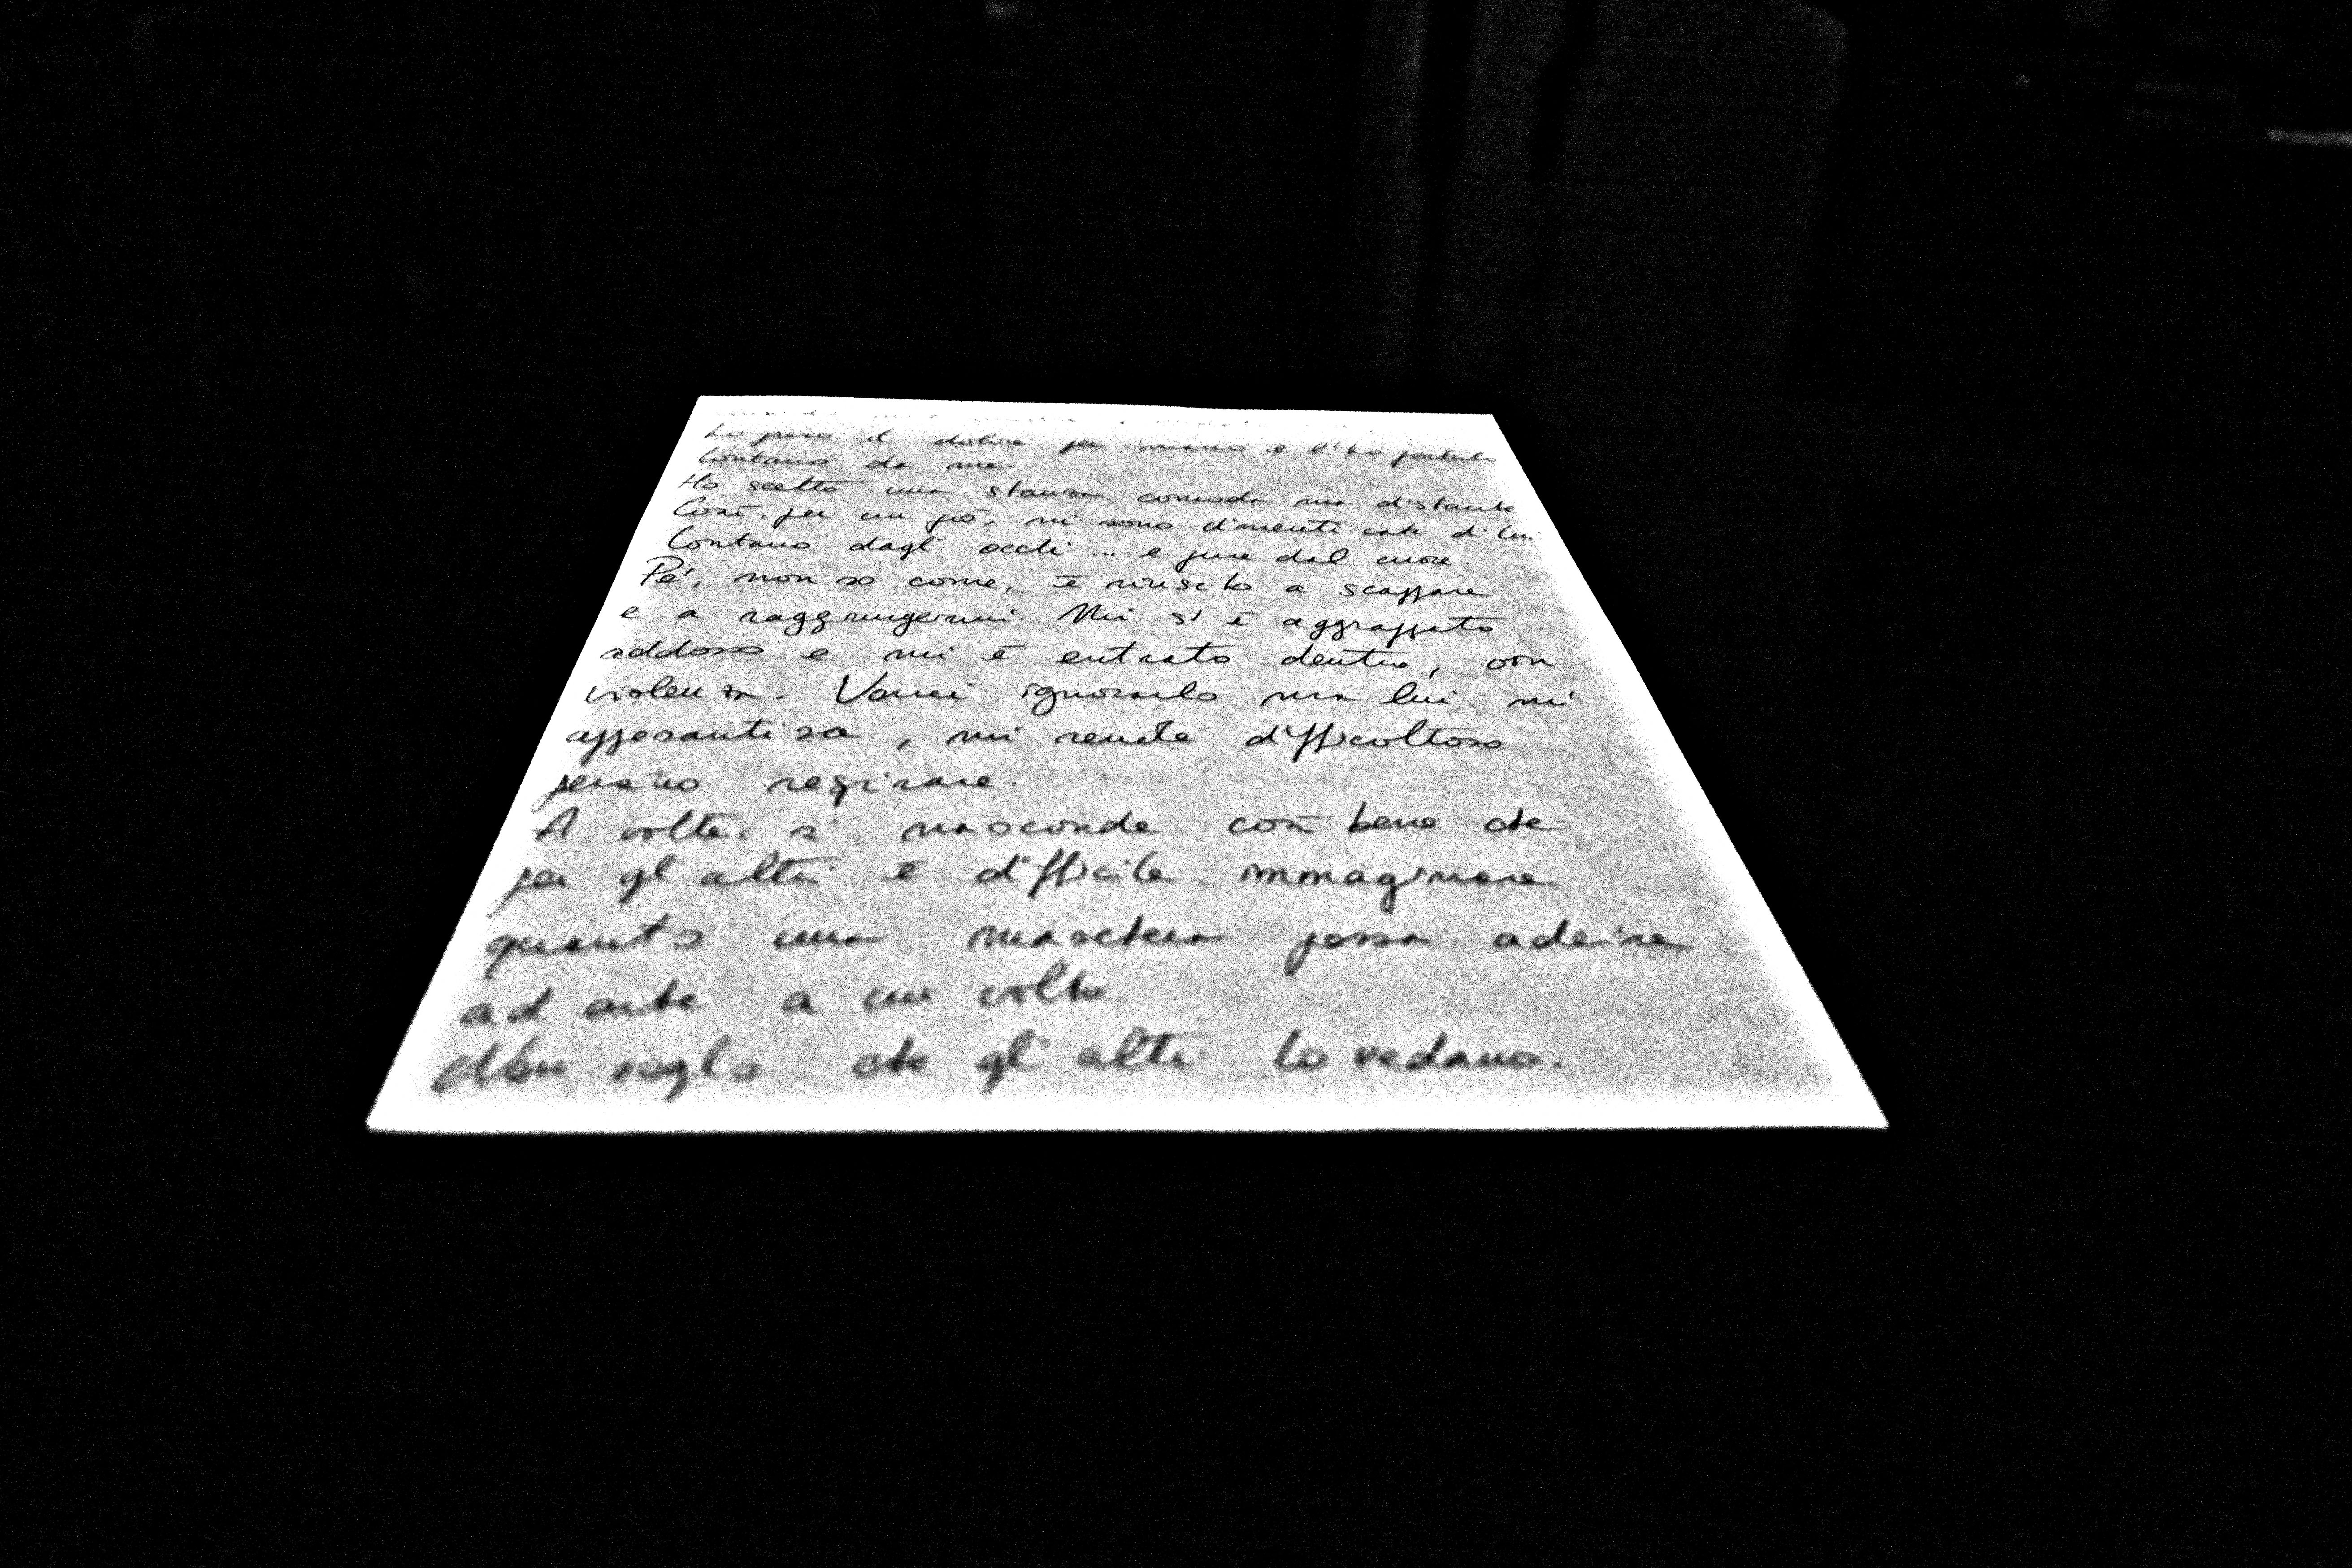 ho preso il dolore per mano e l'ho portato
lontano da me.
Ho scelto una stanza comoda ma distante
Così, per un pò, mi sono dimenticata di lui.
Lontano dagli occhi ... e pure dal cuore.
Poi, non so come, è riuscito a scappare
e a raggiungermi. Mi si è aggrappato
addosso e mi è entrato dentro, con
violenza. Vorrei ignorarlo ma lui mi
appesantisce, mi rende difficoltoso
persino respirare.
A volte si nasconde così bene che
per gli altri è difficile immaginare
quanto una maschera possa aderire
ad arte a un volto
Non voglio che gli altri lo vedano.